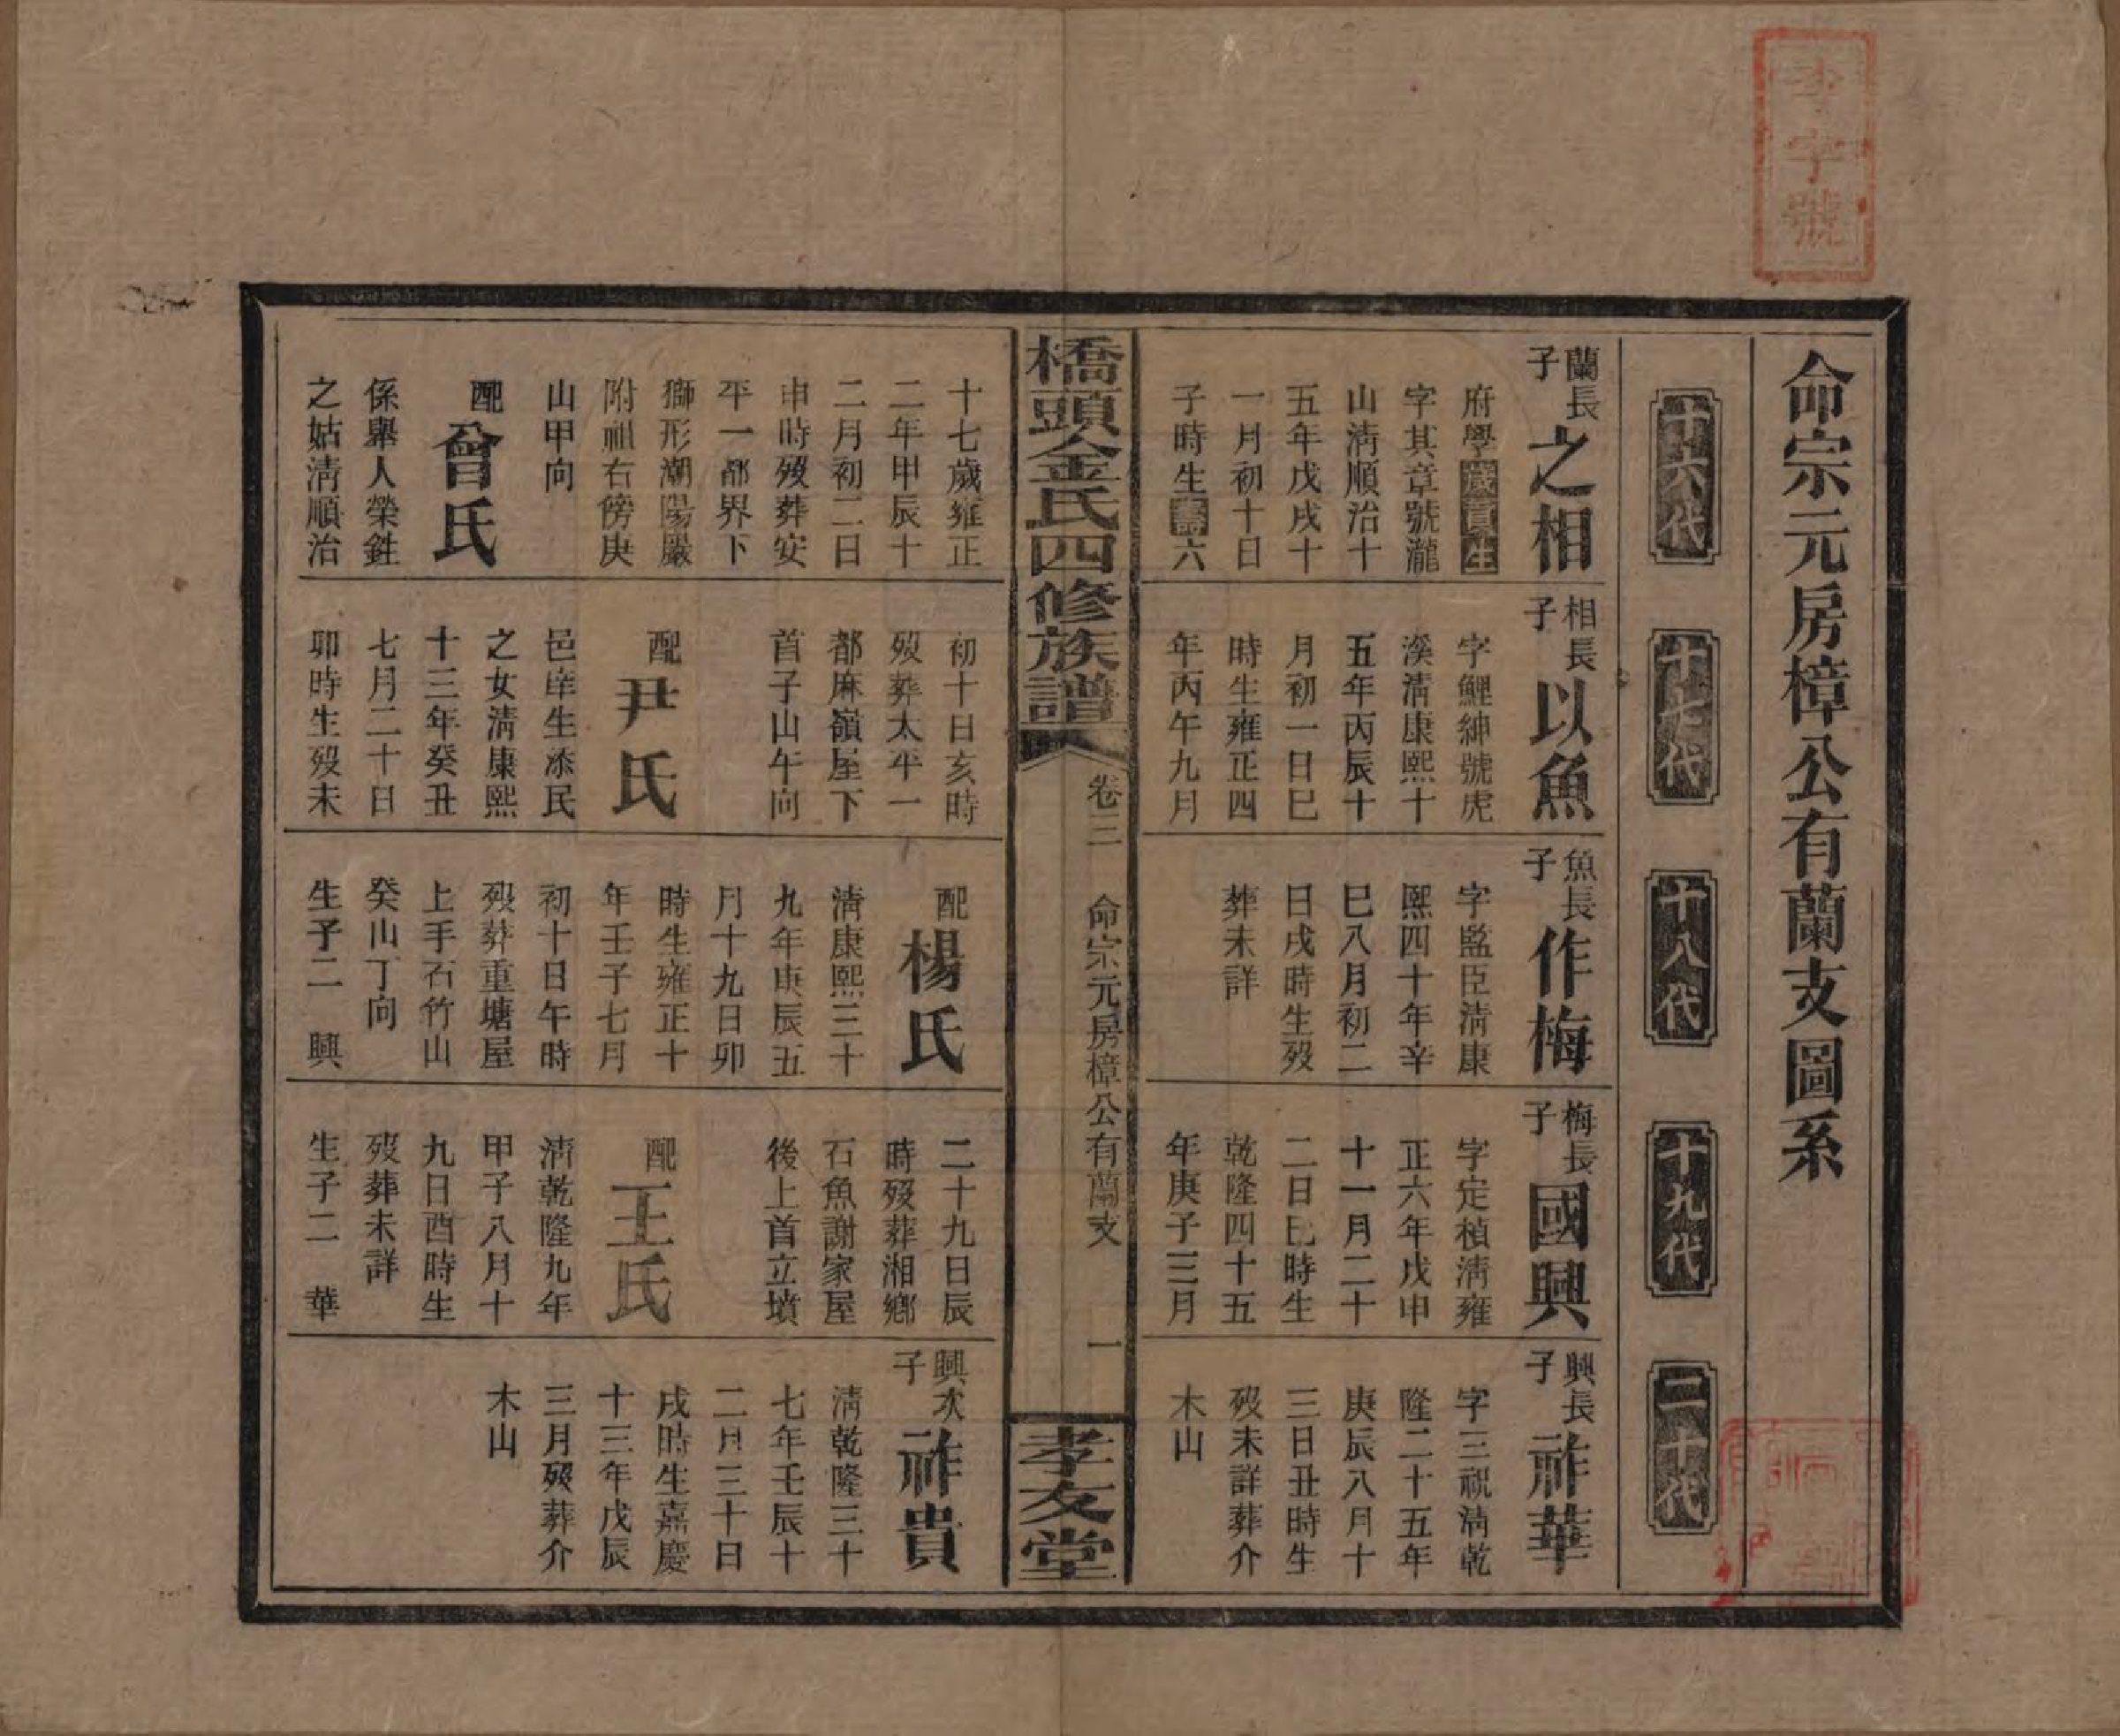 李字號
命宗元房樟公有蘭支圖系
十六代
十七代
十八代
十九代
二十代
蘭長子
之相
府學歲貢生
字其章號瀧
山清順治十
五年戊戌十
一月初十日
子時生壽六
相長子
以魚
字鯉紳號虎
溪清康熙十
五年丙辰十
月初一日巳
時生雍正四
年丙午九月
魚長子
作梅
字監臣清康
熙四十年辛
巳八月初二
日戌時生歿
葬未詳
梅長子
國興
字定楨清雍
正六年戊申
十一月二十
二日巳時生
乾隆四十五
年庚子三月
興長子
祚華
字三祝清乾
隆二十五年
庚辰八月十
三日丑時生
歿未詳葬介
木山
橋頭金氏四修族譜
卷三 命宗元房樟公有蘭支 一
孝友堂
十七歲雍正
二年甲辰十
二月初二日
申時歿葬安
平一都界下
獅形潮陽巖
附祖右傍庚
山甲向
配
曾氏
係舉人榮甡
之姑清順治
初十日亥時
歿葬太平一
都麻嶺屋下
首子山午向
配
尹氏
邑庠生添民
之女清康熙
十三年癸丑
七月二十日
卯時生歿未
配
楊氏
清康熙三十
九年庚辰五
月十九日卯
時生雍正十
年壬子七月
初十日午時
歿葬重塘屋
上手石竹山
癸山丁向
生子二 興
二十九日辰
時歿葬湘鄉
石魚謝家屋
後上首立墳
配
王氏
清乾隆九年
甲子八月十
九日酉時生
歿葬未詳
生子二 華
興次子
祚貴
清乾隆三十
七年壬辰十
二月三十日
戌時生嘉慶
十三年戊辰
三月歿葬介
木山